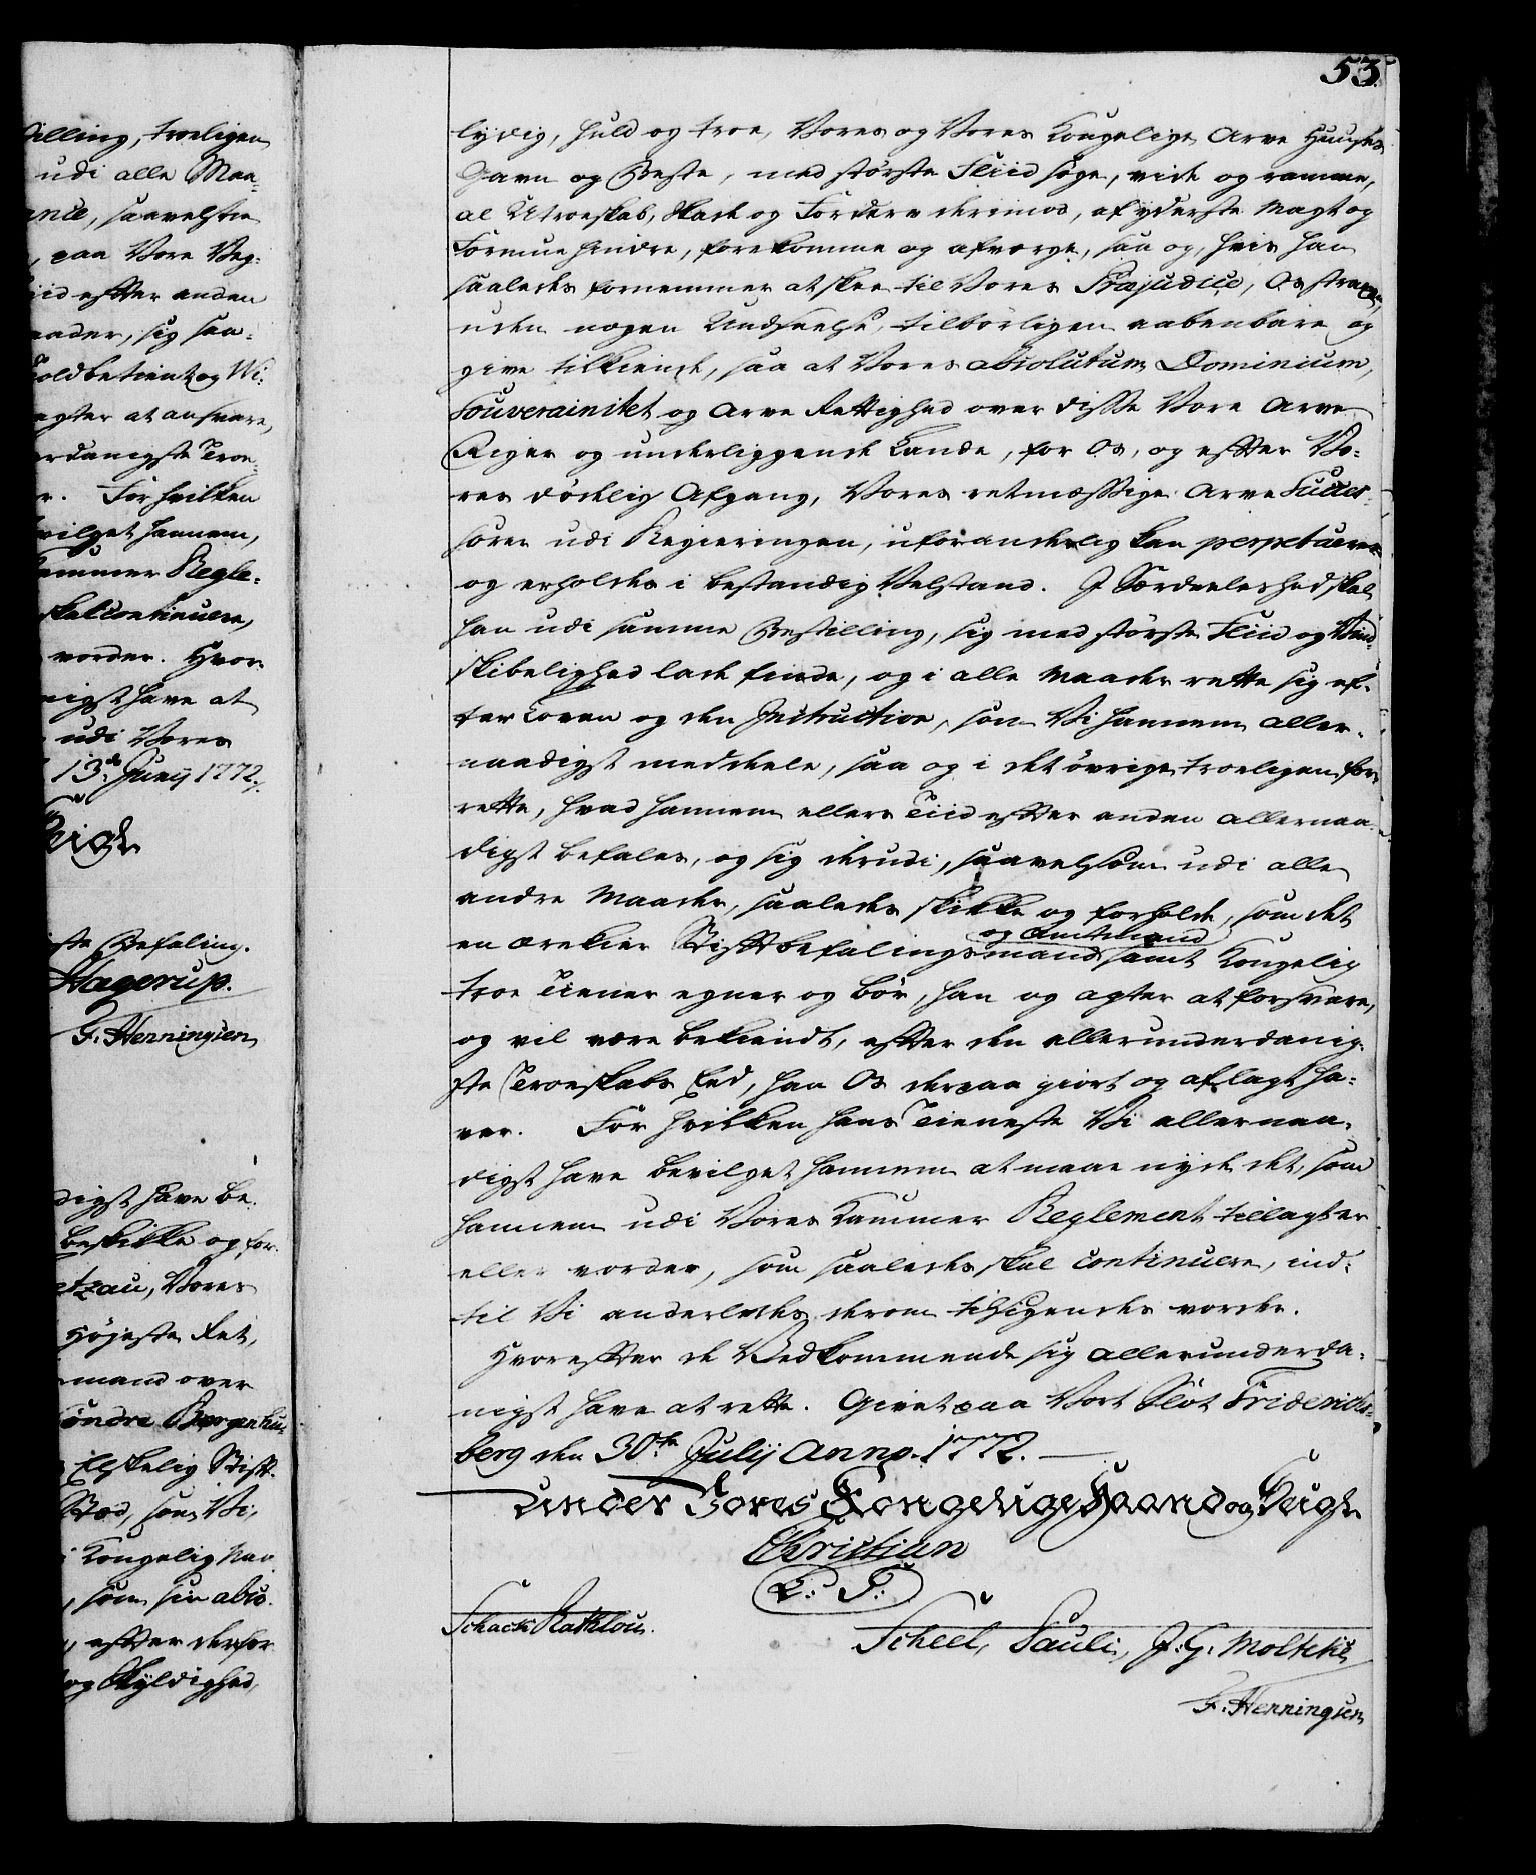 illing, troeligen
udi alle Maa-
ance, saavelsom
, paa Vore Veg-
iid efter anden
aader, sig saa-
oldbetient og Vi-
agter at ansvare,
erdanigste Troe-
r. For hvilken
vilget hannem,
ammer Regle-
skal continuere,
vorder. Hvor-
nigst have at
udi Vores
13de Junij 1772.
Seigl
ste Befaling.
Hagerup.
G. Henningsen
digst have be-
beskikke og for-
etzau, Vores
Højeste Ret,
mand over
Søndre Bergenhu-
Elskelig Stift-
Sted, som Vi,
Kongelig Naa-
, som sin abso-
, efter derfor
og Skyldighed,
53.
lydig, huld og troe, Vores og Vores Kongelige Arve Huuses
Gavn og Beste, med største Fliid søge, viide og ramme,
al Utroeskab, Skade og Fordærv derimod, af yderste Magt og
Formue hindre, forekomme og afværge, saa og, hvis han
saaledes fornemmer at skee til Vores Præjudice, Os strax,
uden nogen Undseelse, tilbørligen aabenbare og
give tilkiende, saa at Vores absolutum Dominium,
Souverainitet og Arve Rettighed over disse Vore Arve
Riger og underliggende Lande, for Os, og efter Vo-
res dødelig Afgang, Vores retmæssige Arve Succes-
sorer udi Regieringen, uforanderlig kan perpetueres
og erholdes i bestandig Velstand. I Særdeleshed skal
han udi samme Bestilling, sig med største Fliid og Vind-
skibelighed lade finde, og i alle Maader rette sig ef-
ter Loven og den Instruction, som Vi hannem aller-
naadigst meddeele, saa og i det øvrige troeligen for-
rette, hvad hannem ellers Tiid efter anden allernaa-
digst befales, og sig derudi, saavelsom udi alle
andre Maader, saaledes skikke og forholde, som det
og Amtmand
en ærekier Stiftbefalingsmand samt Kongelig
troe Tiener egner og bør, han og agter at forsvare,
og vil være bekiendt, efter den allerunderdanig-
ste Troeskabs Eed, han Os derpaa giort og aflagt ha-
ver. For hvilken hans Tieneste Vi allernaa-
digst have bevilget hannem at maae nyde det, som
hannem udi Vores Kammer Reglement tillagt er
eller vorder, som saaledes skal continuere, ind-
til Vi anderledes derom tilsigendes vorde.
Hvorefter de Vedkommende sig allerunderda-
nigst have at rette. Givet paa Vort Slot Friderichs-
berg den 30te Julij Anno. 1772.
Under Vores Kongelige Haand og Seigl
Christian
L: S:
Schack Rathlou.
Scheel, Pauli, J. G. Moltke
G. Henningsen